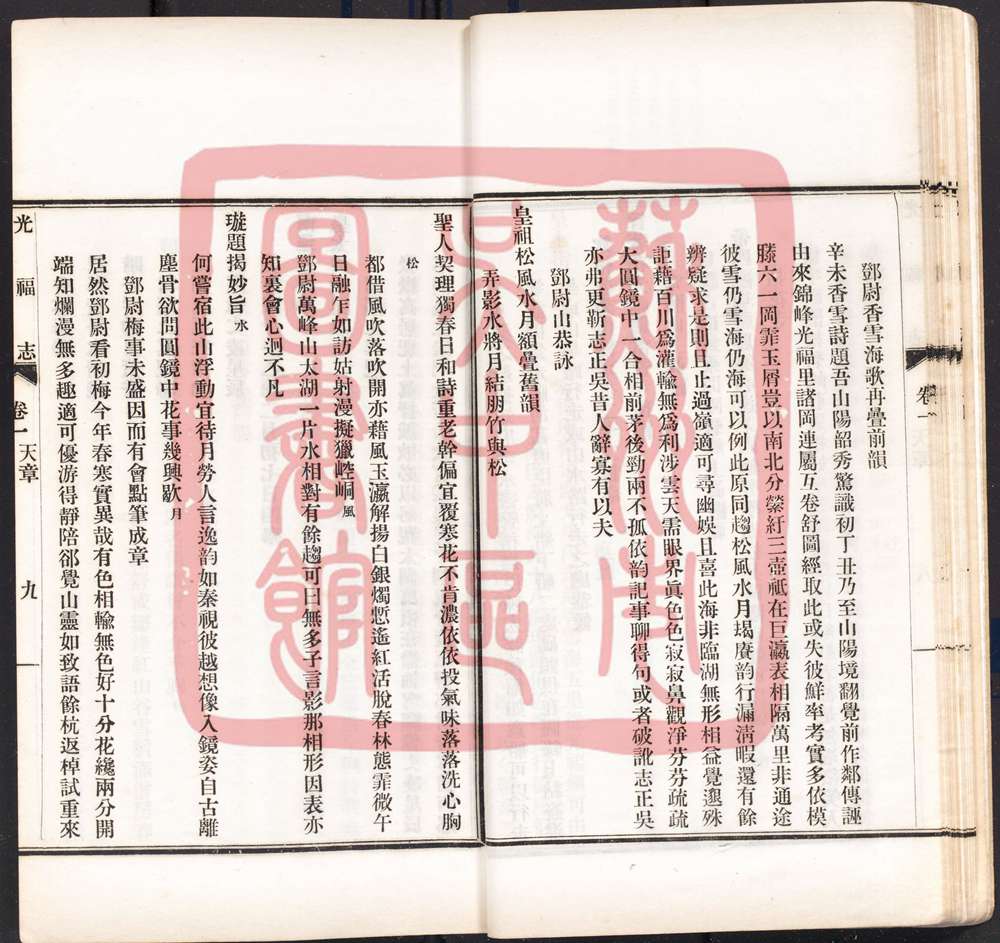 鄧尉香雪海歌冉疊前韻
辛未香雪詩題吾山陽韶秀驚識初丁丑乃至山陽境翻覺前作鄰傳誣
由來錦峰光福里諸岡連屬互卷舒圖經取此或失彼鮮率考實多依模
滕六一岡霏玉屑豈以南北分縈紆三壺祗在巨瀛表相隔萬里非通途
彼雪仍雪海仍海可以例此原同趨松風水月堨賡韵行漏清暇還有餘
辨疑求是則且止過嶺適可尋幽娛且喜此海非臨湖無形相益覺逈殊
詎藉百川爲灌輸無爲利涉雲天需眼界眞色色寂寂鼻觀淨芬芬疏疏
大圓鏡中一合相前茅後勁兩不孤依韵記事聊得句或者破訛志正吳
亦弗更靳志正吳昔人辭寡有以夫
鄧尉山恭詠
皇祖松風水月額疊舊韻
弄影水將月結朋竹與松
聖人契理獨春日和詩重老幹偏宜覆寒花不肯濃依依投氣味落落洗心胸
松
都借風吹落吹開亦藉風玉瀛解揚白銀燭慙遙紅活脫春林態霏微午
日融乍如訪姑射漫擬獵崆峒風
鄧尉萬峰山太湖一片水相對有餘趨可曰無多子言影那相形因表亦
知裏會心迥不凡
璇題揭妙旨水
何嘗宿此山浮動宜待月勞人言逸韵如秦視彼越想像入鏡姿自古離
塵骨欲問圓鏡中花事幾興歇月
鄧尉梅事未盛因而有會點筆成章
居然鄧尉看初梅今年春寒實異哉有色相輸無色好十分花纔兩分開
端知爛漫無多趣適可優游得靜陪郤覺山靈如致語餘杭返棹試重來
光福志
卷一
天章
九
蘇州
吳中區
圖書館